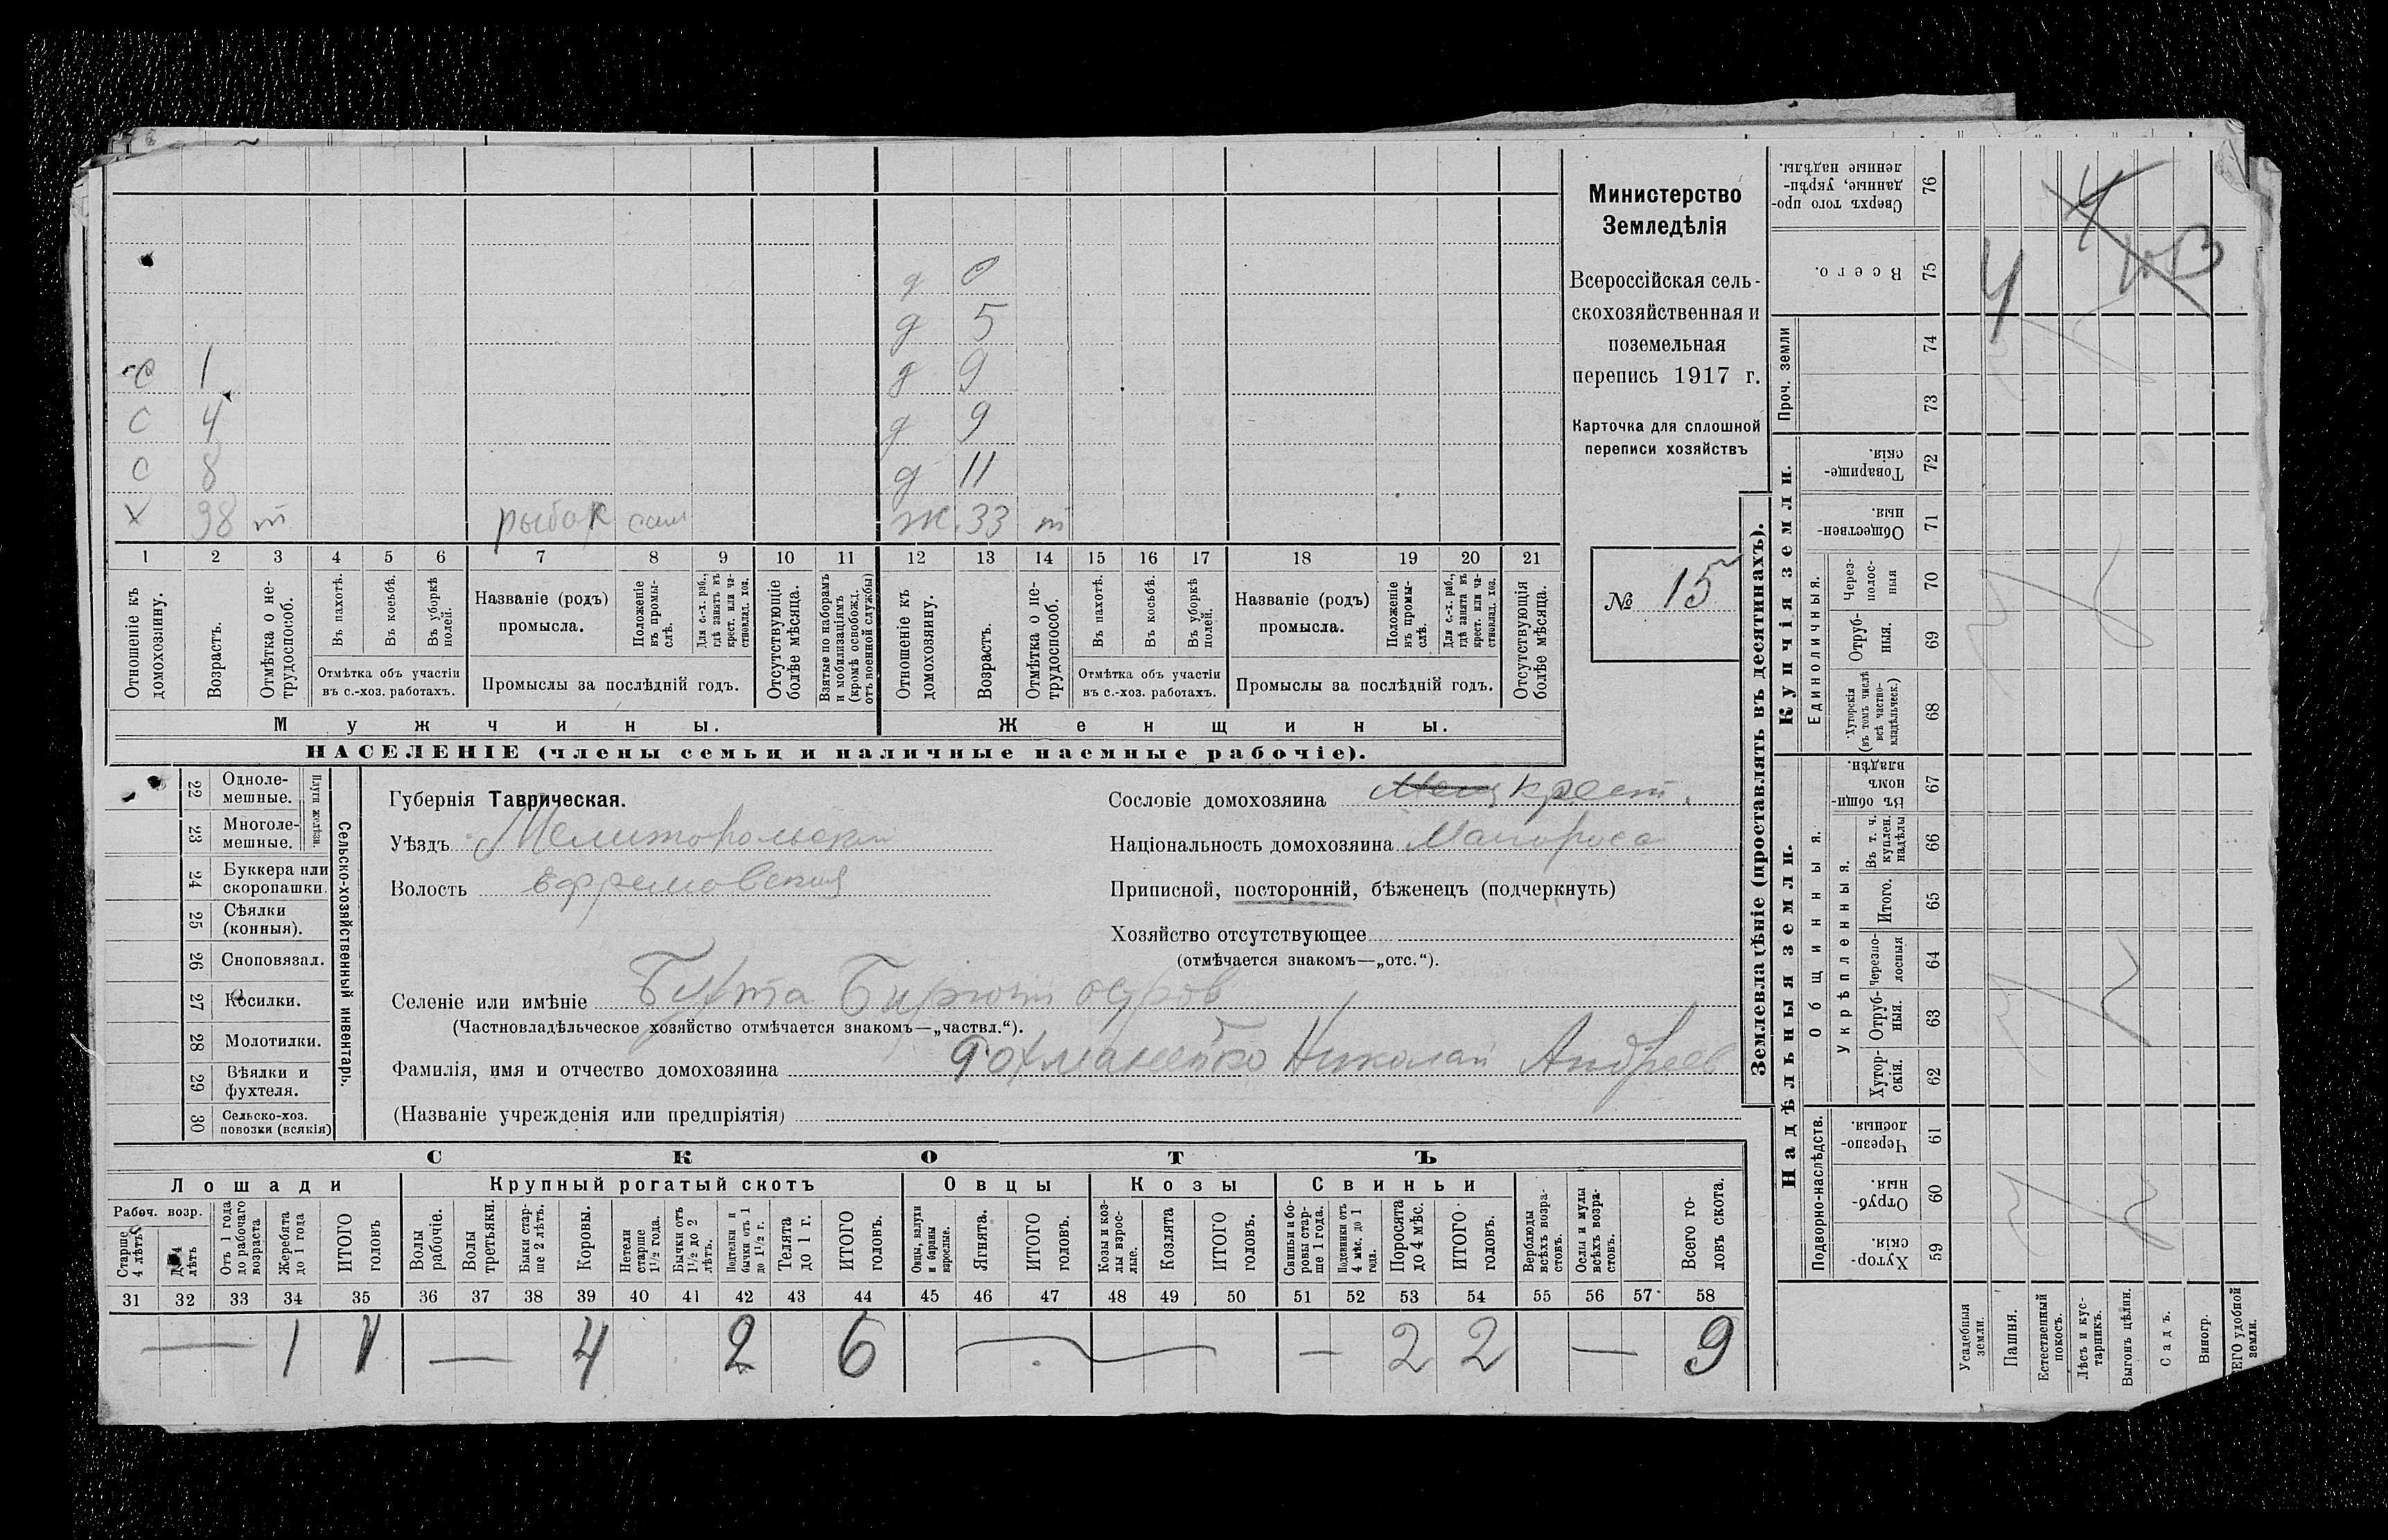 д 0
д 5
с 1 д 9
с 4 д 9
с 8 д 11
х 38 т рыбак сам ж. 33 т
1 2 3 4 5 6 7 8 9 10 11 12 13 14 15 16 17 18 19 20 21
Отношеніе къ домохозяину.
Возрастъ.
Отмѣтка о не-
трудоспособ.
Въ пахотѣ.
Въ косьбѣ.
Въ уборкѣ
полей.
Отмѣтка объ участіи
въ с.-хоз. работахъ.
Названіе (родъ)
промысла.
Положеніе
въ промы-
слѣ.
Для с.-х. раб.,
гдѣ занятъ въ
крест. или ча-
стновлад. хоз.
Промыслы за послѣдній годъ.
Отсутствующіе
болѣе мѣсяца.
Взятые по наборамъ
и мобилизаціямъ
(кромѣ освобожд.
отъ военной службы)
Отношеніе къ
домохозяину.
Возрастъ.
Отмѣтка о не-
трудоспособ.
Въ пахотѣ.
Въ косьбѣ.
Въ уборкѣ
полей.
Отмѣтка объ участіи
въ с.-хоз. работахъ.
Названіе (родъ)
промысла.
Положеніе
въ промы-
слѣ.
Для с.-х. раб.,
гдѣ занята въ
крест. или ча-
стновлад. хоз.
Промыслы за послѣдній годъ.
Отсутствующія
болѣе мѣсяца.
Мужчины.
Женщины.
НАСЕЛЕНІЕ (члены семьи и наличные наемные рабочіе).
Министерство
Земледѣлія
Всероссійская сель-
скохозяйственная и
поземельная
перепись 1917 г.
Карточка для сплошной
переписи хозяйствъ
№ 15
22 Одноле-
мешные.
23 Многоле-
мешные.
Плуги желѣзн.
24 Буккера или
скоропашки.
25 Сѣялки
(конныя).
26 Сноповязал.
27 Косилки.
28 Молотилки.
29 Вѣялки и
фухтеля.
30 Сельско-хоз.
повозки (всякія)
Сельско-хозяйственный инвентарь.
Губернія Таврическая.
Уѣздъ Мелитопольский
Волость Ефремовская
Сословіе домохозяина Мещ крест.
Національность домохозяина Малоросс
Приписной, посторонній, бѣженецъ (подчеркнуть)
Хозяйство отсутствующее
(отмѣчается знакомъ—„отс.“).
Селеніе или имѣніе Бухта Бирючи остров
(Частновладѣльческое хозяйство отмѣчается знакомъ—„частвл.“).
Фамилія, имя и отчество домохозяина Николай Андреев
(Названіе учрежденія или предпріятія)
СКОТЪ
Лошади Крупный рогатый скотъ Овцы Козы Свиньи
Рабоч. возр.
Старше
4 лѣтъ
До 4
лѣтъ
Отъ 1 года
до рабочаго
возраста
Жеребята
до 1 года
ИТОГО
головъ
Волы
рабочіе.
Волы
третьяки.
Быки стар-
ше 2 лѣтъ.
Коровы.
Нетели
старше
1½ года.
Бычки отъ
1½ до 2
лѣтъ.
Подтелки и
бычки отъ 1
до 1½ г.
Телята
до 1 г.
ИТОГО
головъ.
Овцы, валухи
и бараны
взрослые.
Ягнята.
ИТОГО
головъ.
Козы и коз-
лы взрос-
лые.
Козлята
ИТОГО
головъ.
Свиньи и бо-
ровы стар-
ше 1 года.
Подсвинки отъ
4 мѣс. до 1
года.
Поросята
до 4 мѣс.
ИТОГО
головъ.
Верблюды
всѣхъ возра-
стовъ.
Ослы и мулы
всѣхъ возра-
стовъ.
Всего го-
ловъ скота.
31 32 33 34 35 36 37 38 39 40 41 42 43 44 45 46 47 48 49 50 51 52 53 54 55 56 57 58
— 1 1 — 4 2 6 — — 2 2 — 9
Землевладѣніе (проставлять въ десятинахъ).
Купчія земли.
Надѣльныя земли.
Сверхъ того про-
данные, укрѣп-
ленные надѣлы.
76
Всего.
75
Проч. земли
74
73
Товарище-
скія.
72
Обществен-
ныя.
71
Единоличныя.
Через-
полос-
ныя
70
Отруб-
ныя.
69
Хуторскія
(въ томъ числѣ
всѣ частно-
владѣльческ.)
68
Общинныя.
Въ общи-
номъ
владѣн.
67
Укрѣпленныя.
Въ т. ч.
куплен.
надѣлы
66
Итого.
65
Черезпо-
лосныя
64
Отруб-
ныя.
63
Хутор-
скія.
62
Подворно-наслѣдств.
Черезпо-
лосныя.
61
Отруб-
ныя.
60
Хутор-
скія.
59
Усадебныя
земли.
Пашня.
Естественный
покосъ.
Лѣсъ и кус-
тарникъ.
Выгонъ цѣлин.
Садъ.
Виногр.
ЕГО удобной
земли.
4